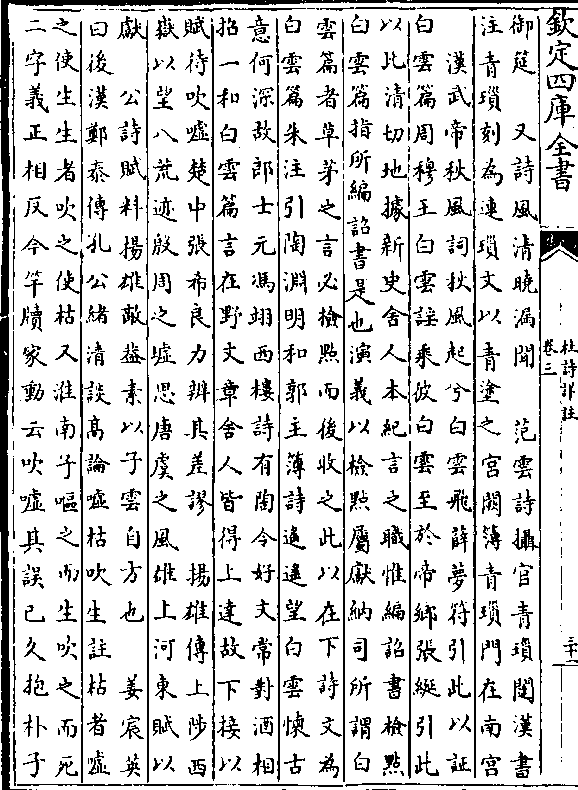 欽定四庫全書
杜詩詳註
卷三
三十二
御筵　又詩風清曉漏聞　范雲詩攝官青瑣闥漢書
注青瑣刻為連瑣文以青塗之宮闕簿青瑣門在南宮
漢武帝秋風詞秋風起兮白雲飛薛夢符引此以証
白雲篇周穆王白雲謡乘彼白雲至於帝鄉張綖引此
以此清切地據新史舍人本紀言之職惟編詔書檢點
白雲篇指所編詔書是也演義以檢點屬獻納司所謂白
雲篇者草茅之言必檢點而後收之此以在下詩文為
白雲篇朱注引陶淵明和郭主簿詩遥遥望白雲懐古
意何深故郎士元馮翊西樓詩有陶令好文常對酒相
招一和白雲篇言在野文章舍人皆得上達故下接以
賦待吹嘘楚中張希良力辨其差謬　揚雄傳上陟西
嶽以望八荒迹殷周之虚思唐虞之風雄上河東賦以
獻　公詩賦料揚雄敵葢素以子雲自方也　姜宸英
曰後漢鄭泰傳孔公緒清談髙論嘘枯吹生註枯者嘘
之使生生者吹之使枯又淮南子嘔之而生吹之而死
二字義正相反今竿牘家動云吹嘘其誤已久抱朴子